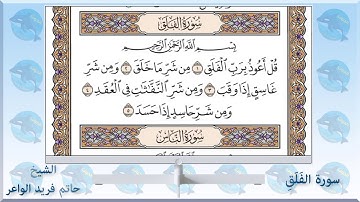 سُورَةُ الفَلَقِ
بِسْمِ اللَّهِ الرَّحْمَٰنِ الرَّحِيمِ
قُلْ أَعُوذُ بِرَبِّ الْفَلَقِ ١ مِن شَرِّ مَا خَلَقَ ٢ وَمِن شَرِّ
غَاسِقٍ إِذَا وَقَبَ ٣ وَمِن شَرِّ النَّفَّاثَاتِ فِي الْعُقَدِ ٤
وَمِن شَرِّ حَاسِدٍ إِذَا حَسَدَ ٥
سُورَةُ النَّاسِ
الشيخ
حاتم فريد الواعر
سورة الفَلَقِ